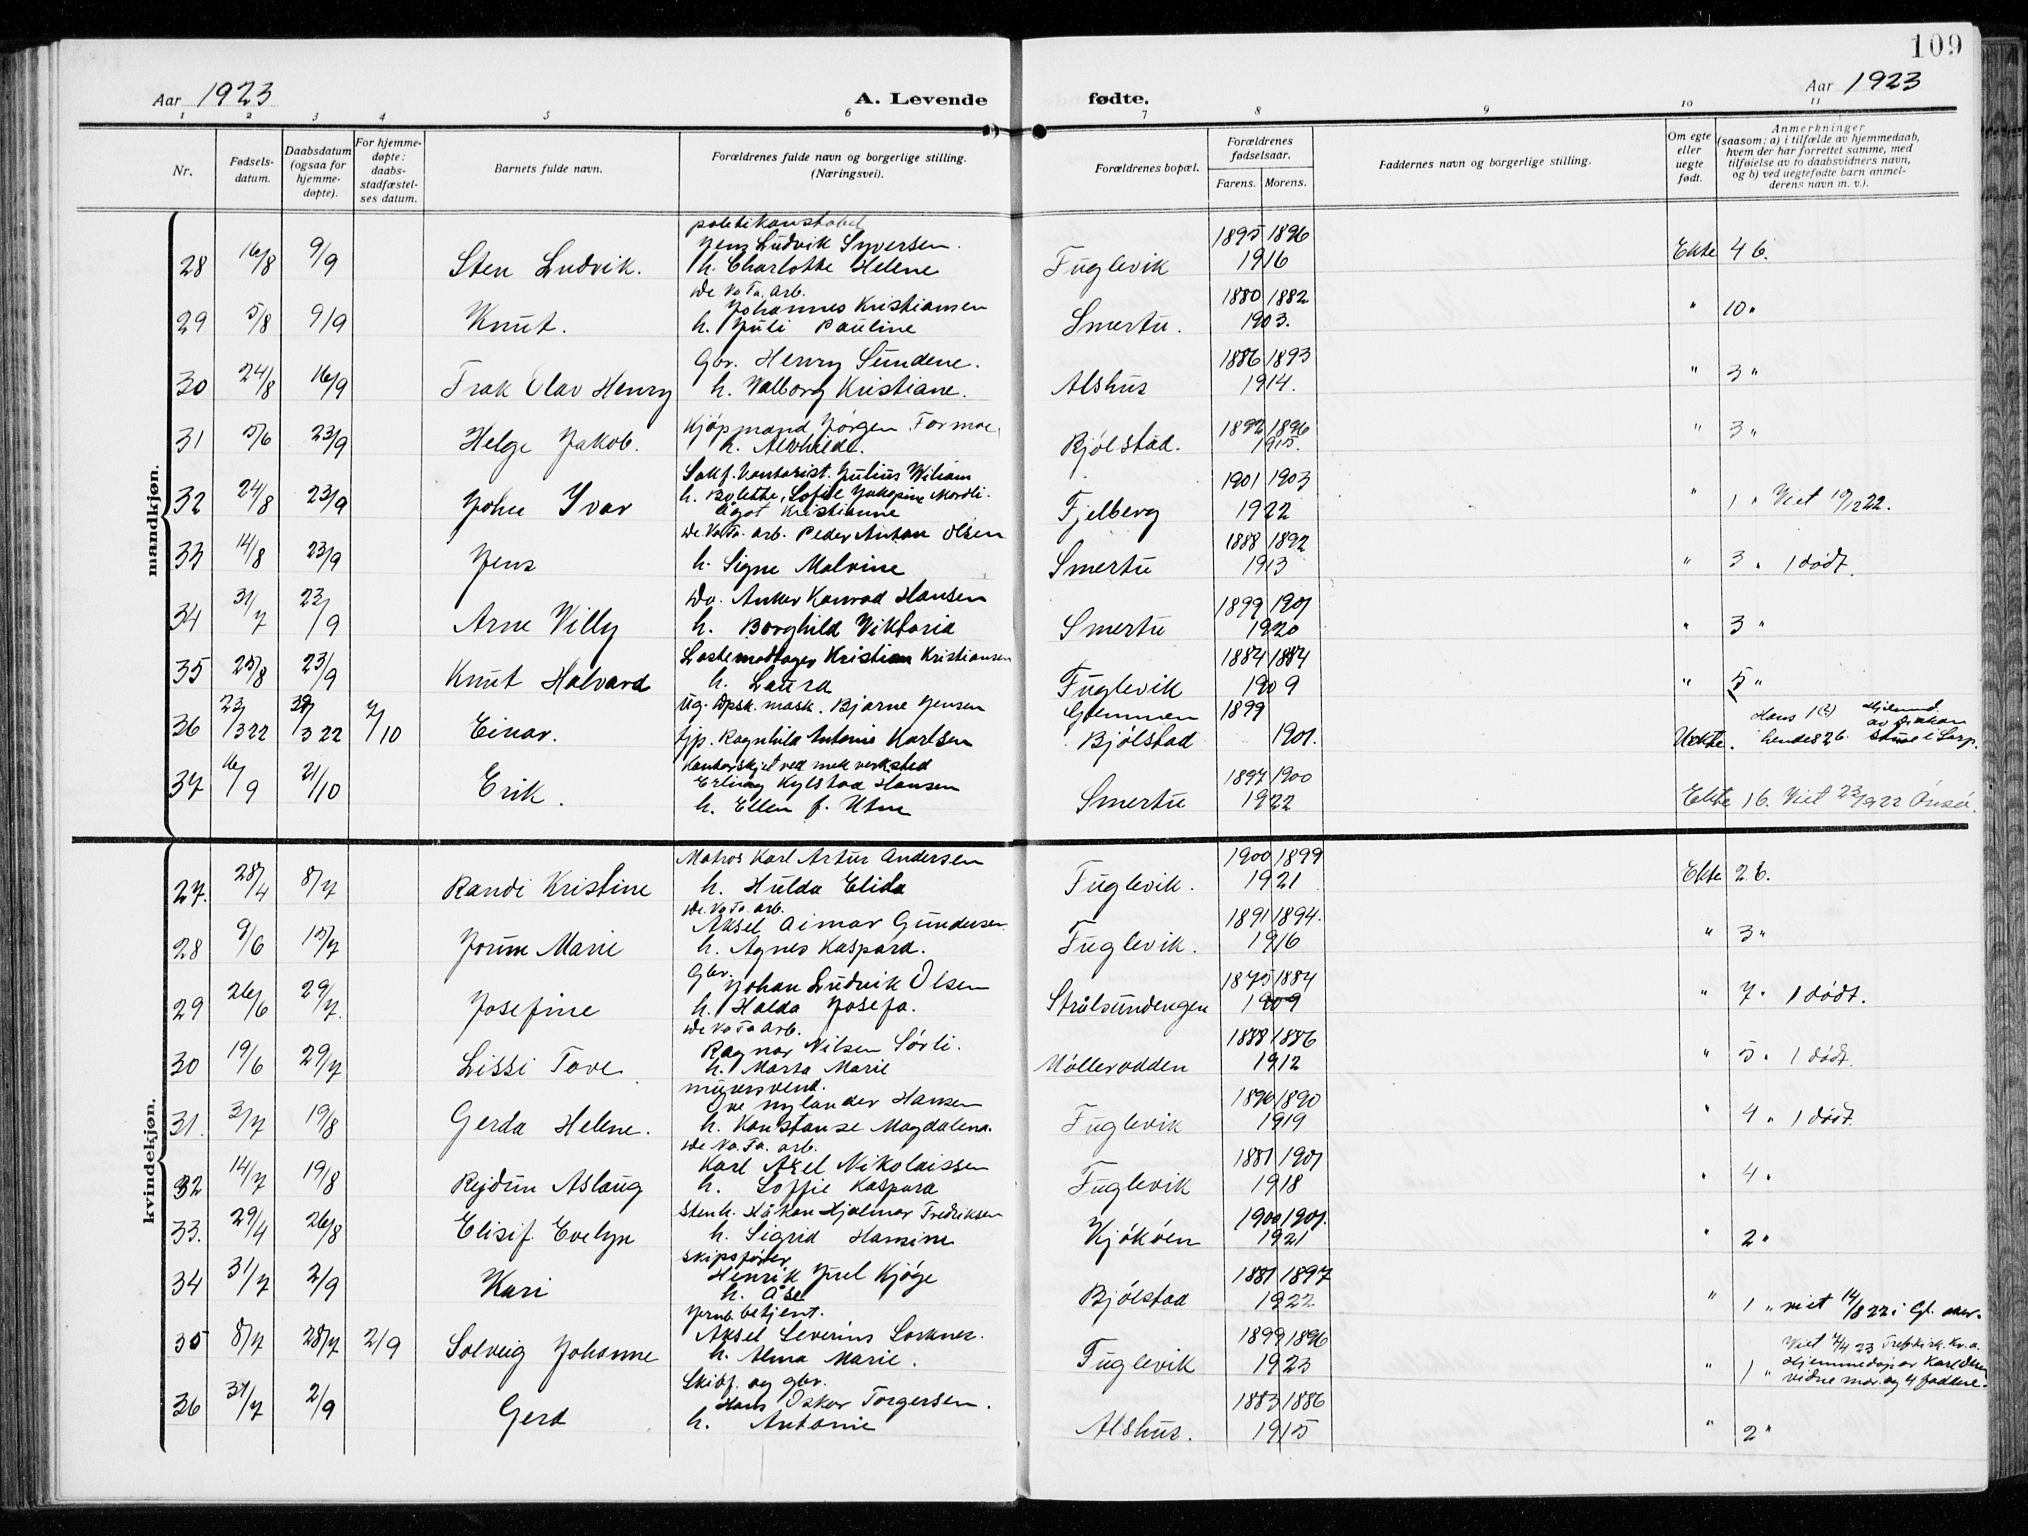 109
Aar 1923
A. Levende fødte.
Aar 1923
1 2 3 4 5 6 7 8 9 10 11
Nr.
Fødsels-
datum.
Daabsdatum
(ogsaa for
hjemme-
døpte).
For hjemme-
døpte:
daabs-
stadfæstel-
ses datum.
Barnets fulde navn.
Forældrenes fulde navn og borgerlige stilling.
(Næringsvei).
Forældrenes bopæl.
Forældrenes
fødselsaar.
Farens. Morens.
Faddernes navn og borgerlige stilling.
Om egte
eller
uegte
født.
Anmerkninger
(saasom: a) i tilfælde av hjemmedaab,
hvem der har forrettet samme, med
tilføielse av to daabsvidners navn,
og b) ved uegtefødte barn anmel-
derens navn m. v.).
mandkjøn.
politikonstabel
Jens Ludvik Syversen. 1895 1896
28 16/8 9/9 Sten Ludvik. h. Charlotte Helene Fuglevik 1916 Ekte 4 b.
De No Fa. arb.
Johannes Kristiansen 1880 1882
29 5/8 9/9 Knut. h. Juli Pauline Smertu. 1903. " 10 "
Gbr. Henry Sundene. 1886 1893
30 24/8 16/9 Olav Henry h. Valborg Kristiane. Alshus 1914. " 3 "
Kjøpmand Jørgen Formoe. 1892 1896
31 5/6 23/9 Helge Jakob. h. Alvhilde. Bjølstad. 1915. " 3 "
Julius Wiliam 1901 1903
32 24/8 23/9 John Ivar h. Bolette, Sofie
Ågot Kristianne Fjelberg 1922 " 1 " Viet 19/12 22.
De No Fa. arb. Peder Anton Olsen 1888 1892
33 14/8 23/9 Jens h. Signe Malvine Smertu 1913 " 3 " 1 død.
Do. Anker Konrad Hansen 1899 1901
34 31/7 23/9 Arne Villy h. Borghild Viktoria Smertu 1920 " 3 "
Lastemodtager Kristian Kristiansen 1884 1884
35 25/8 23/9 Knut Halvard h. Laura Fuglevik 1909 " 5 "
Ug. Dpsk. mask. Bjarne Jensen Glemmen 1899
36 23/3 22 7/10 Einar. fjp. Ragnhild Antonie Karlsen Bjølstad 1901. Uekte. Hans 1(?) hendes 2 b.
Kontorskjef ved mek verksted
Erling Kylstad Hansen 1897 1900
37 16/9 21/10 Erik. h. Ellen f. Utne Smertu 1922 Ekte 1 b. Viet 23/9 22 Onsø.
kvindekjøn.
Matros Karl Artur Andersen 1900 1899
27. 28/4 8/7 Randi Kristine h. Hulda Elida Fuglevik. 1921 Ekte 2 b.
De. No Fa. arb.
Aksel Aimar Gundersen 1891 1894.
28 9/6 15/7 Jorun Marie h. Agnes Kaspara. Fuglevik. 1916 " 3 "
Gbr.
Johan Ludvik Olsen 1875 1884
29 26/6 29/7. Josefine h. Halda Josefa. Strålsundengen 1909 " 7 " 1 død.
De No Fa arb.
Ragnar Nilsen Sørli. 1888 1886
30 19/6 29/7 Lissi Tove h. Marta Marie Møllerodden 1912 " 5 " 1 død.
mursvend.
Ove Nylander Hansen 1890 1890
31. 3/7 19/8 Gerda Helene. h. Konstanse Magdalena. Fuglevik 1919 " 4 " 1 død.
De No. Fa. arb.
Karl Axel Nikolaissen 1881 1901
32 14/7 19/8 Rejdun Aslaug h. Soffie Kaspara Fuglevik 1918 " 4 "
Stenh. Håkon Hjalmar Fredriksen 1900 1901.
33. 29/4 26/8 Elisif Evelyn h. Sigrid Hansine Kjøkøen 1921 " 2 "
skipsfører
Henrik Juel Kjøge 1881 1897
34 31/7 2/9 Kari h. Åse Bjølstad 1922 " 1 " viet 14/8 22 i Gl. aker.
Jernb. betjent.
Aksel Severius Sørknes. 1899 1896
35 8/7 28/7 2/9 Solveig Johanne h. Alma Marie. Fuglevik 1923 " 1 " Viet 7/4 23 Trefkirk. Kr.a.
vidne mor. og 4 faddere.
Skibf. og gbr.
Hans Oskar Torgersen. 1883 1886
36 31/7 2/9 Gerd h. Antonie Alshus. 1915 " 2 "